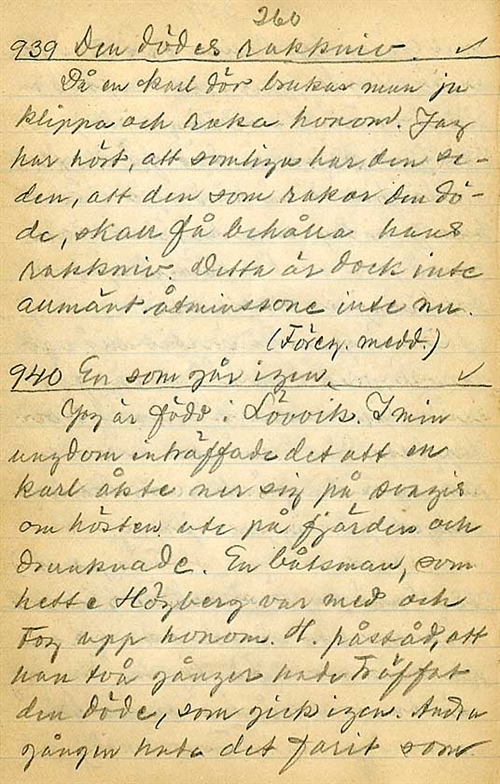 260
939 Den dödes rakkniv. ✓
Då en karl dör brukar man ju
klippa och raka honom. Jag
har hört, att somliga har den se-
den, att den som rakar den dö-
de, skall få behålla hans
rakkniv. Detta är dock inte
allmänt åtminstone inte nu.
(Föreg. medd.)
940 En som går igen. ✓
Jag är född i Lövvik. I min
ungdom inträffade det att en
karl åkte ner sig på svagis
om hösten ute på fjärden och
drunknade. En båtsman, som
hette Högberg var med och
tog upp honom. H. påstod, att
han två gånger hade träffat
den döde, som gick igen. Andra
gången hade det farit som